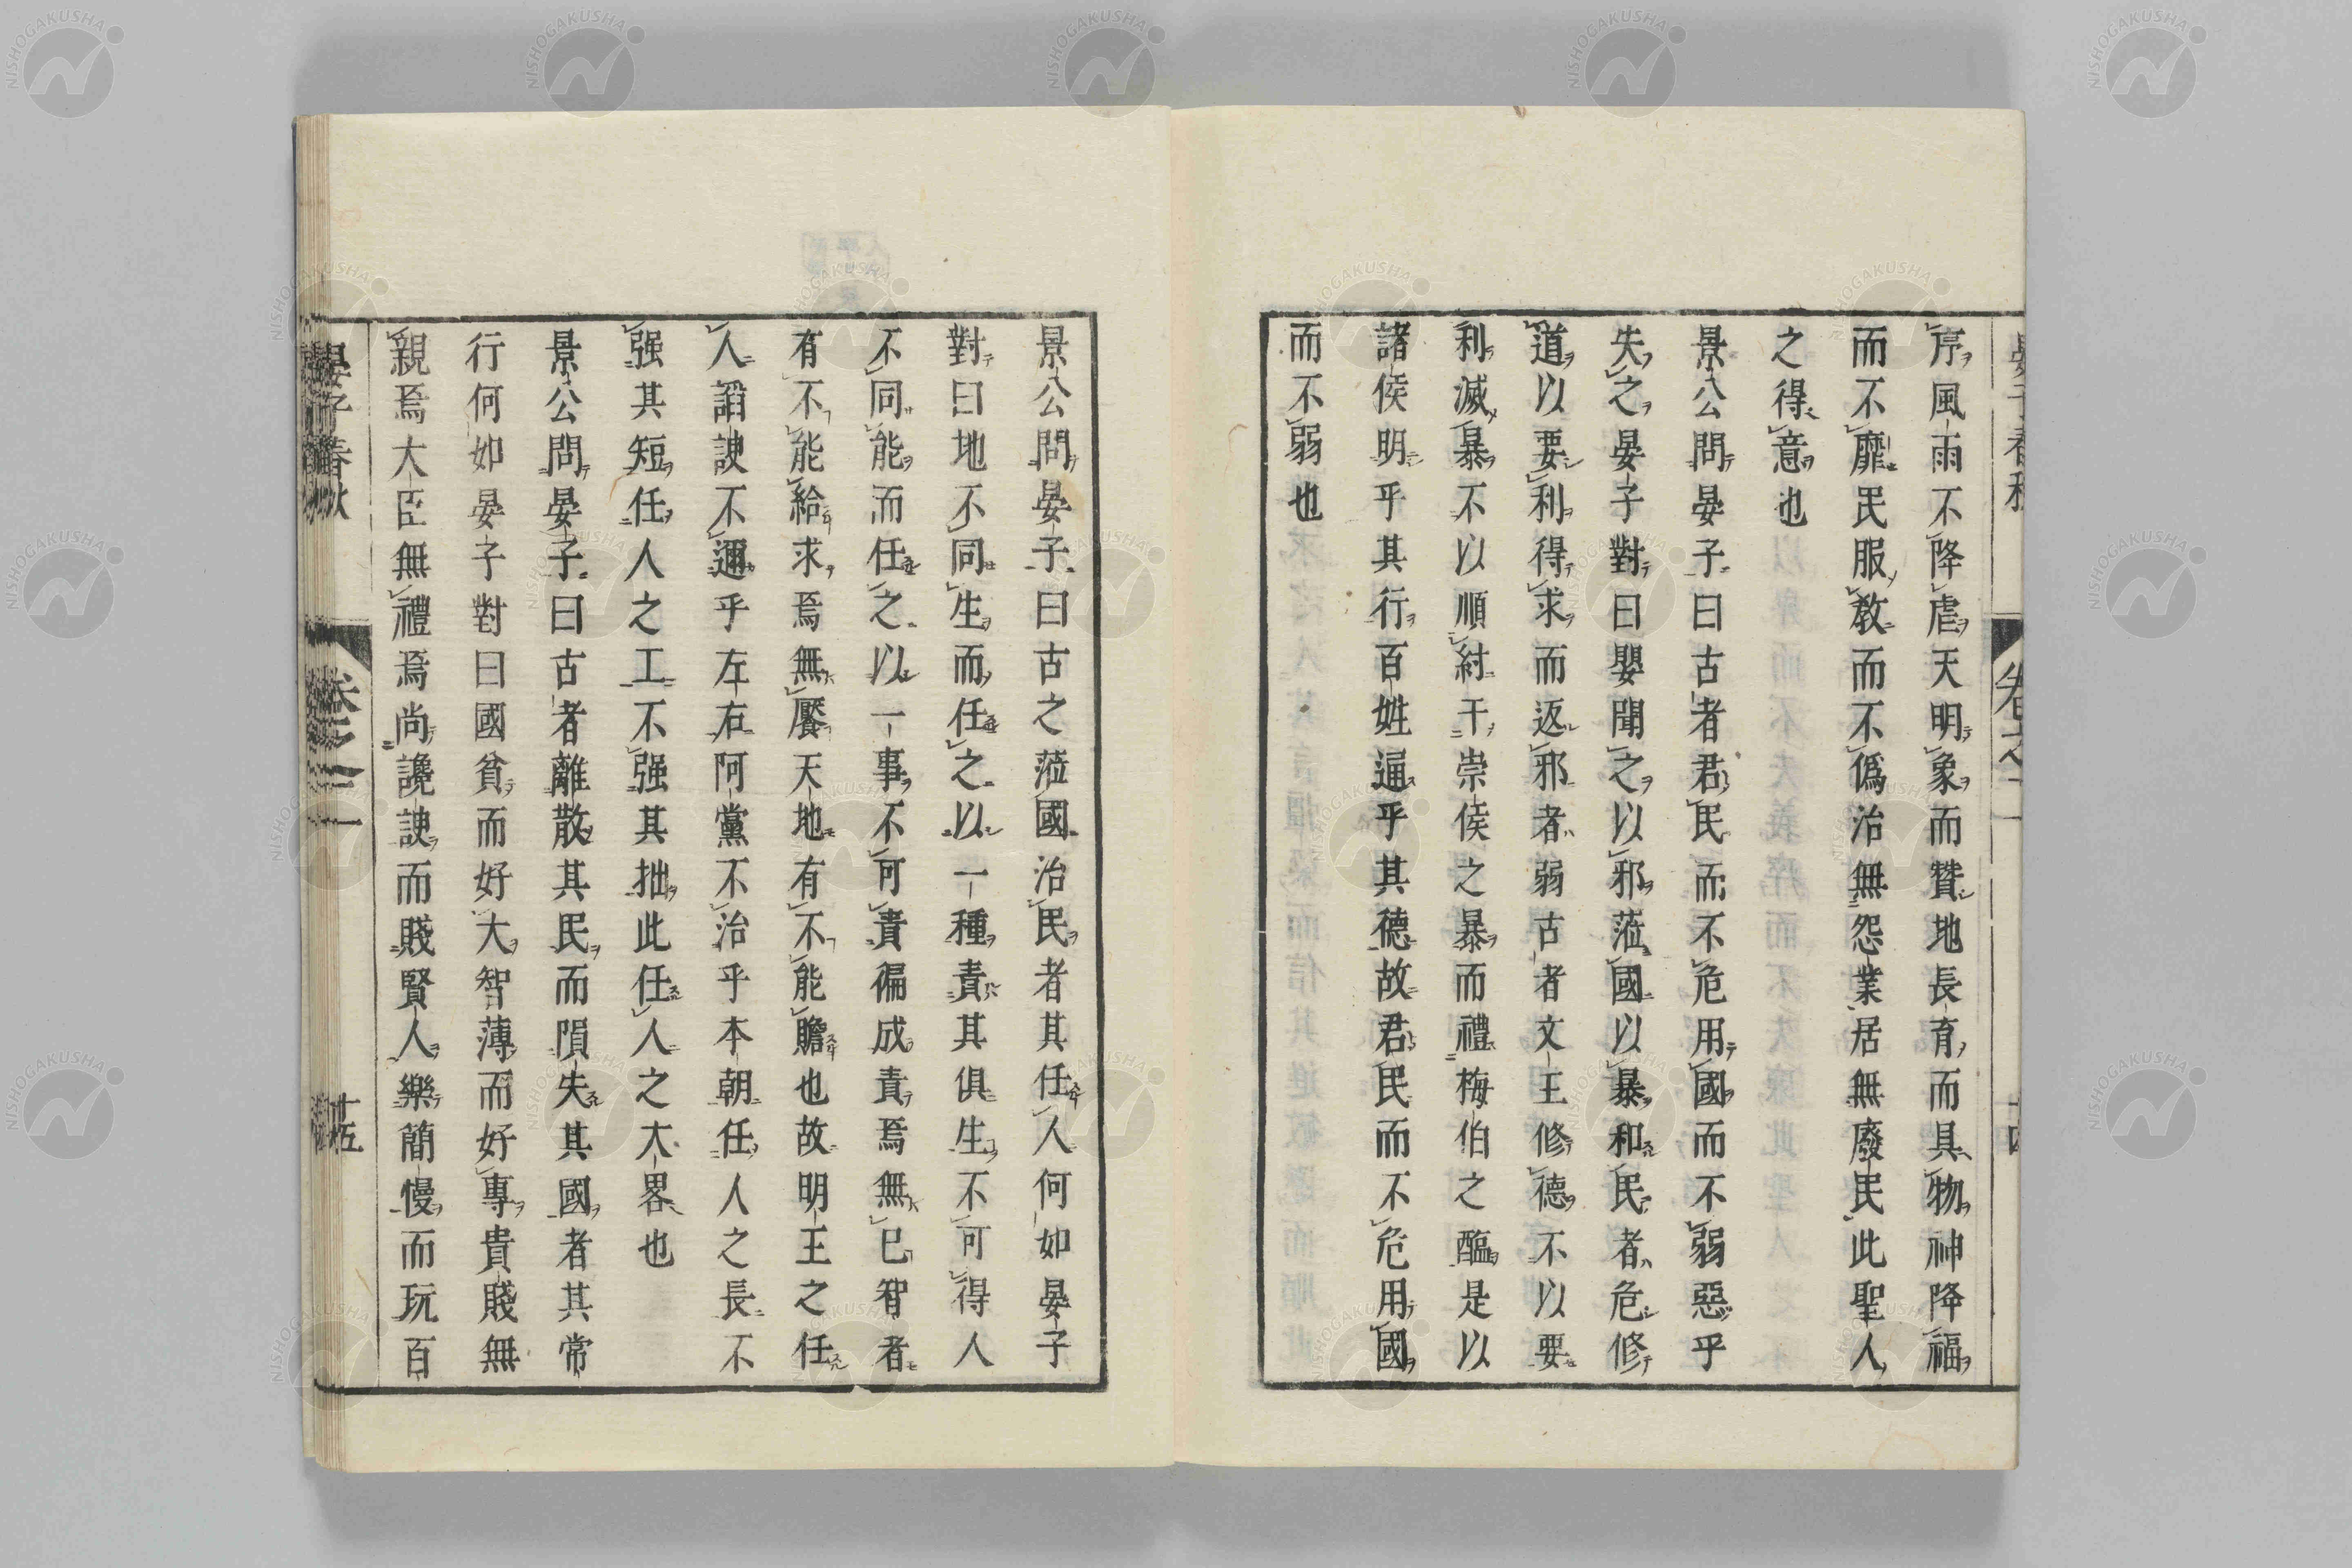 晏子春秋
卷之二
十四
序風雨不降虐天明象而贊地長育而具物神降福
而不靡民服敎而不僞治無怨業居無廢民此聖人
之得意也
景公問晏子曰古者君民而不危用國而不弱惡乎
失之晏子對曰嬰聞之以邪蒞國以暴和民者危修
道以要利得求而返邪者弱古者文王修德不以要
利滅暴不以順紂干崇侯之暴而禮梅伯之醢是以
諸侯明乎其行百姓通乎其德故君民而不危用國
而不弱也
景公問晏子曰古之蒞國治民者其任人何如晏子
對曰地不同生而任之以一種責其俱生不可得人
不同能而任之以一事不可責徧成責焉無已智者
有不能給求焉無饜天地有不能贍也故明王之任
人謟諛不邇乎左右阿黨不治乎本朝任人之長不
强其短任人之工不强其拙此任人之大畧也
景公問晏子曰古者離散其民而隕失其國者其常
行何如晏子對曰國貧而好大智薄而好專貴賤無
親焉大臣無禮焉尚讒諛而賤賢人樂簡慢而玩百
晏子春秋
卷之二
十五